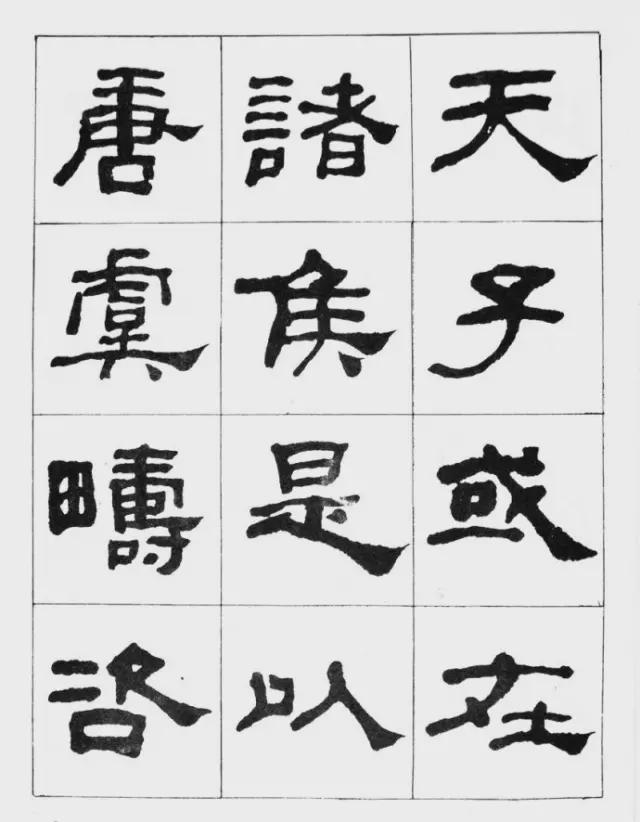 天子或在
諸侯是以
唐虞疇咨